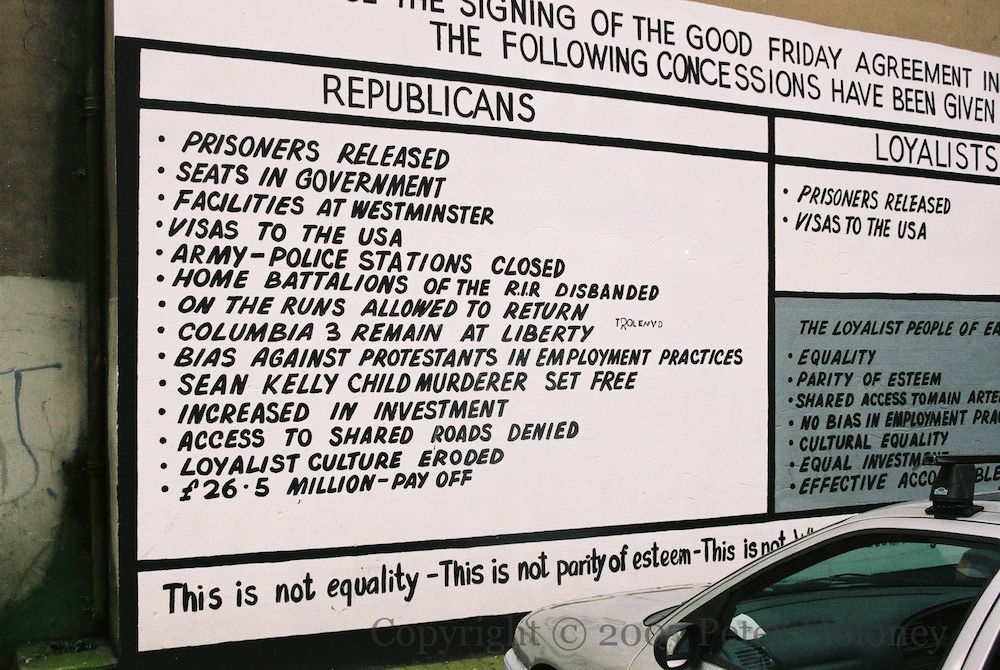 THE SIGNING OF THE GOOD FRIDAY AGREEMENT IN
THE FOLLOWING CONCESSIONS HAVE BEEN GIVEN
REPUBLICANS
• PRISONERS RELEASED
• SEATS IN GOVERNMENT
• FACILITIES AT WESTMINSTER
• VISAS TO THE USA
• ARMY-POLICE STATIONS CLOSED
• HOME BATTALIONS OF THE R.I.R DISBANDED
• ON THE RUNS ALLOWED TO RETURN
• COLUMBIA 3 REMAIN AT LIBERTY
• BIAS AGAINST PROTESTANTS IN EMPLOYMENT PRACTICES
• SEAN KELLY CHILD MURDERER SET FREE
• INCREASED IN INVESTMENT
• ACCESS TO SHARED ROADS DENIED
• LOYALIST CULTURE ERODED
• £26.5 MILLION-PAY OFF
LOYALISTS
• PRISONERS RELEASED
• VISAS TO THE USA
THE LOYALIST PEOPLE OF
• EQUALITY
• PARITY OF ESTEEM
• SHARED ACCESS TO MAIN
• NO BIAS IN EMPLOYMENT
• CULTURAL EQUALITY
• EQUAL
• EFFECTIVE
This is not equality - This is not parity of esteem - This is not
Copyright © Peter Moloney